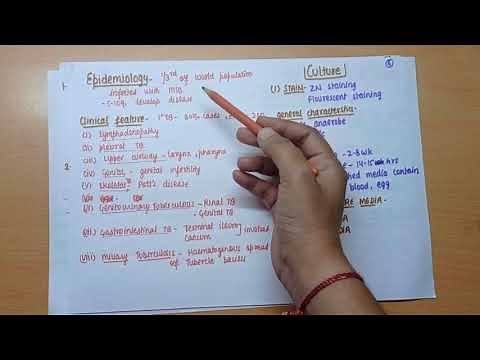 1-
Epidemiology- 1/3rd of world population
infected with MTB
-5-10% develop disease
Clinical feature- 1°TB-
(i) lymphadenopathy
(ii) pleural TB
2.
(iii) Upper airway - larynx, pharynx
(iv) Genital - genital infertility
(v) skeletal - Pott's disease
(vi) Genitourinary Tuberculosis - Renal TB
- Genital TB
(vii) Gastrointestinal TB - Terminal ileum involved
caecum
(viii) miliary Tuberculosis - Haematogenous spread
of Tubercle bacilli
Culture
(1) STAIN- ZN staining
Flourescent staining
general characteristics-
anaerobe
- 2-8wk
- 14-15 hrs
media contain
blood, egg
MEDIA-
MEDIA